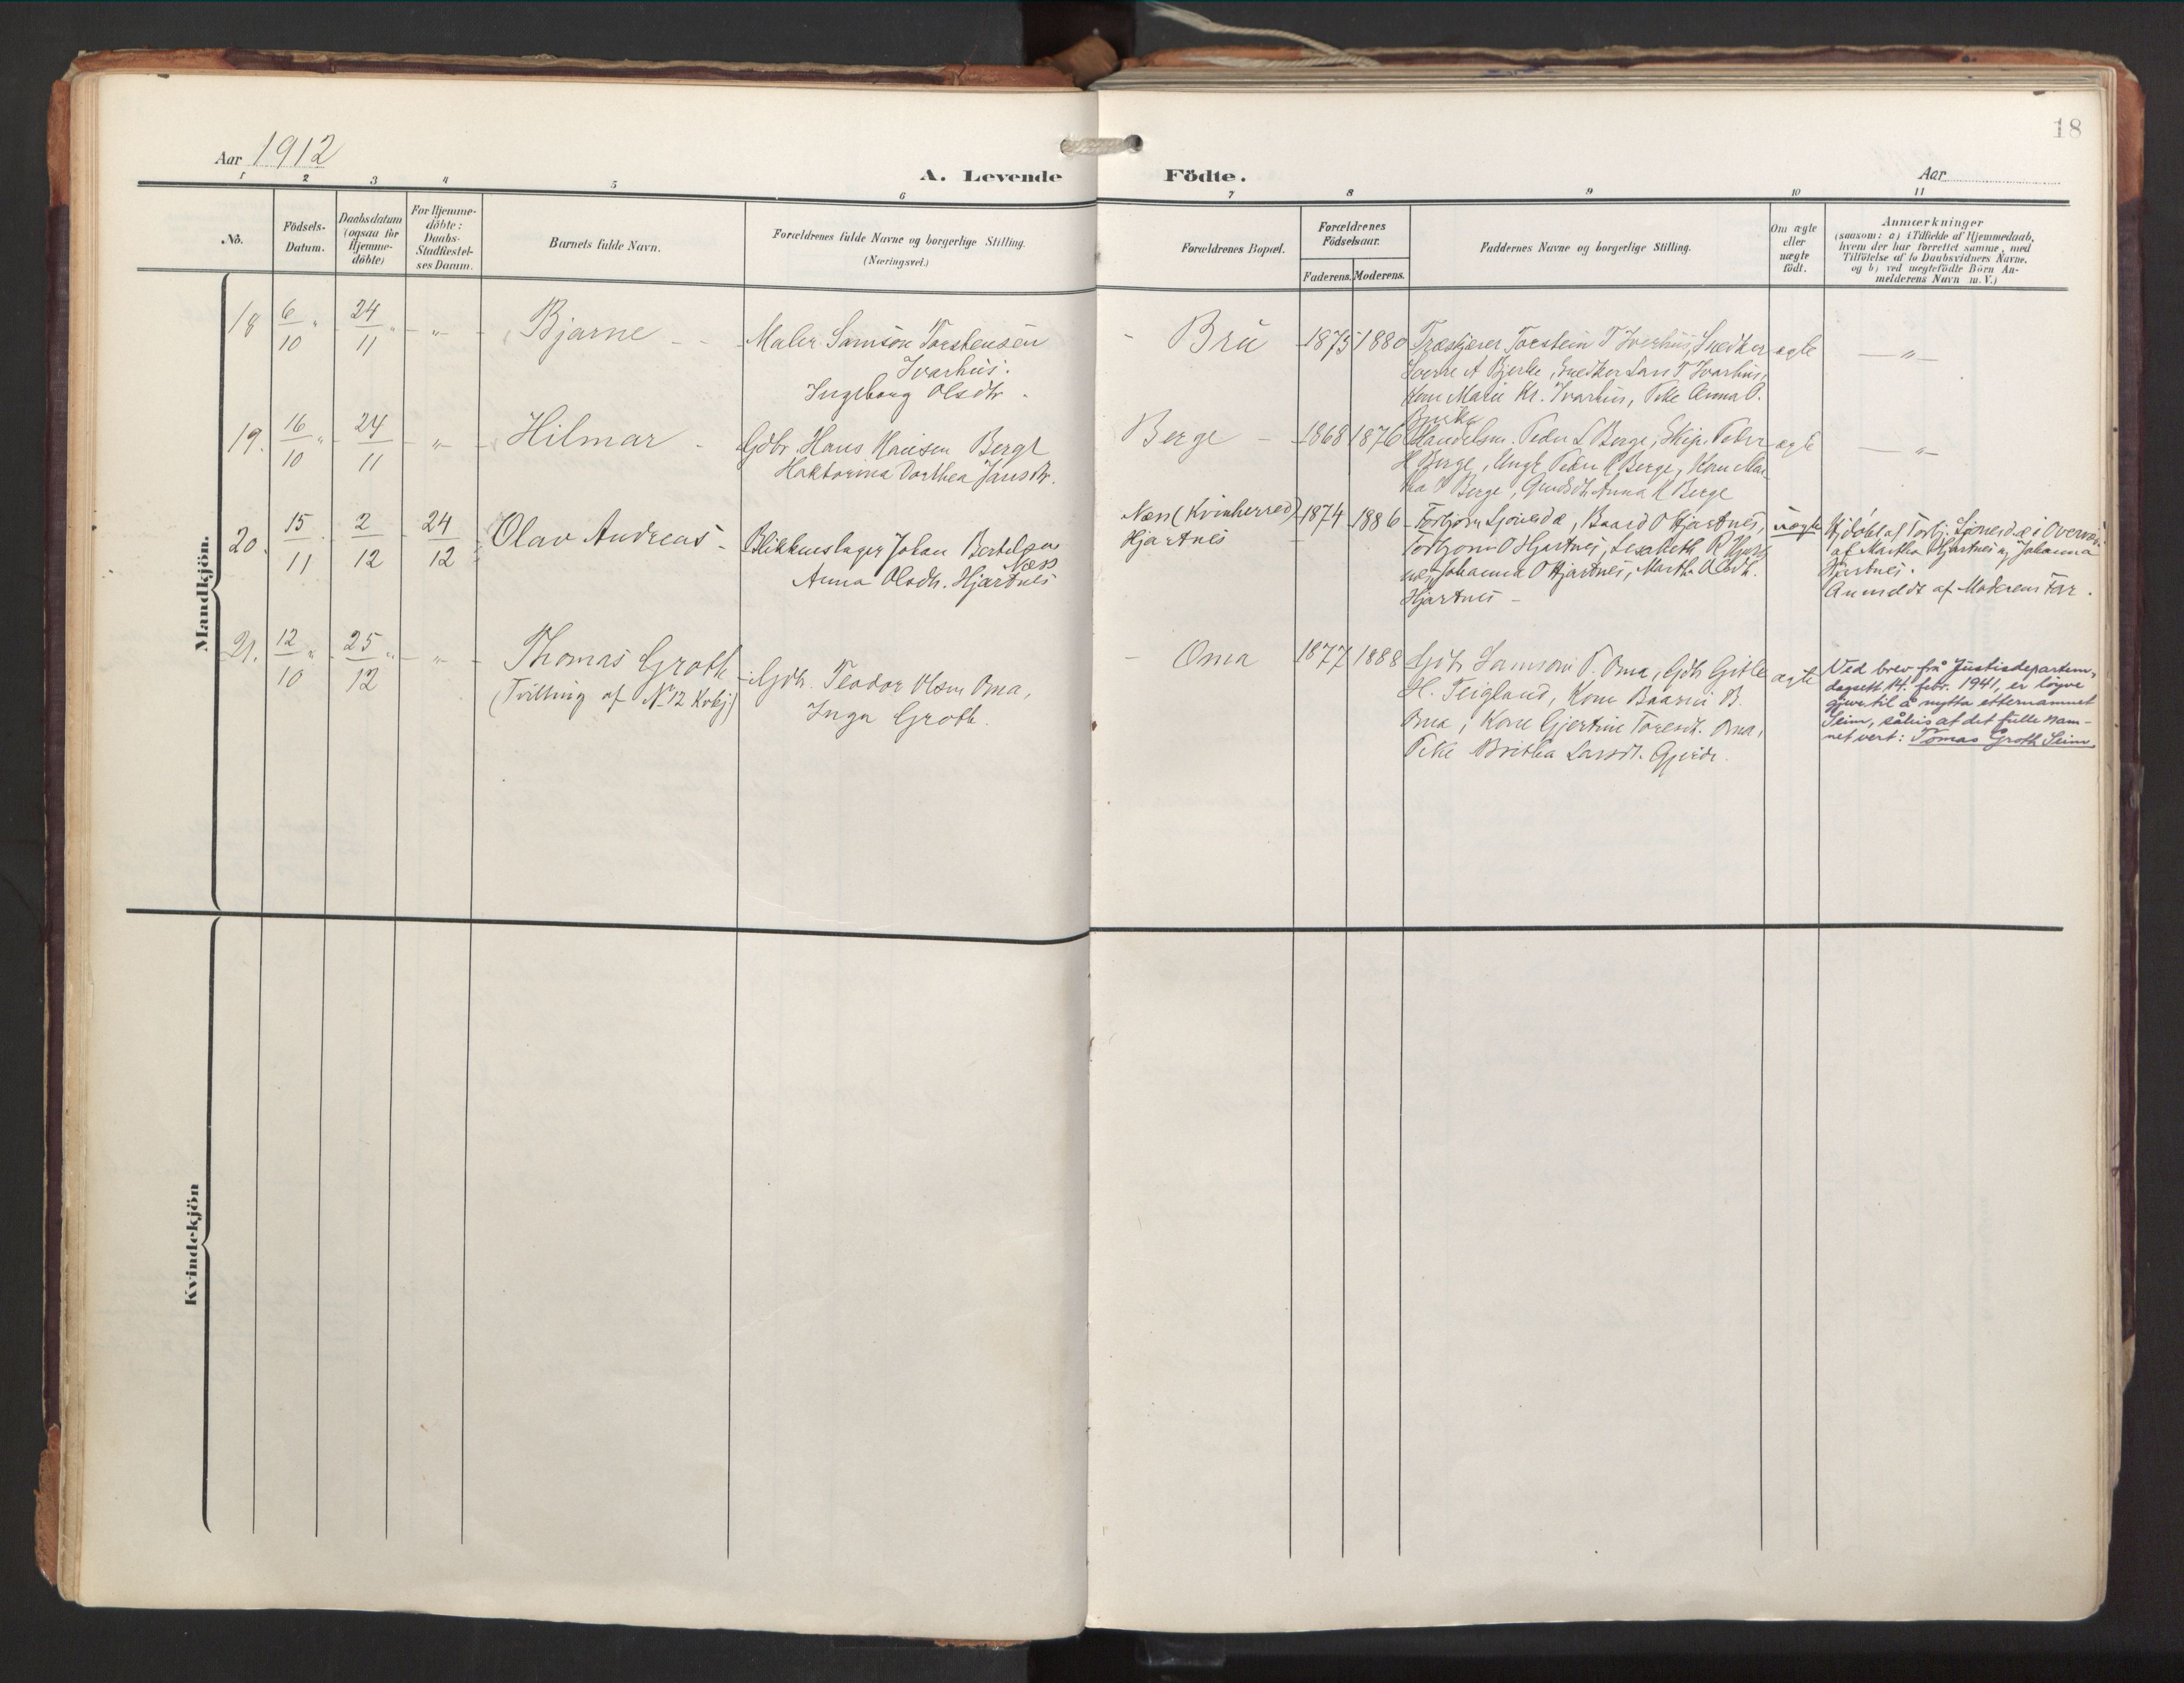 18
Aar 1912
A. Levende Födte.
Aar
1 2 3 4 5 6 7 8 9 10 11
No.
Födsels-
Datum.
Daabsdatum
(ogsaa for
Hjemme-
döbte)
For Hjemme-
döbte:
Daabs-
Stadfæstel-
ses Datum.
Barnets fulde Navn.
Forældrenes fulde Navne og borgerlige Stilling.
(Næringsvei.)
Forældrenes Bopæl.
Forældrenes
Födselsaar.
Faderens. Moderens.
Faddernes Navne og borgerlige Stilling.
Om ægte
eller
uægte
födt.
Anmærkninger
(saasom: a) i Tilfælde af Hjemmedaab,
hvem der har forrettet samme, med
Tilföielse af to Daabsvidners Navne,
og b) ved uægtefödte Börn An-
melderens Navn m. V.)
Mandkjön.
18 6/10 " 24/11 " - " - Bjarne - -
Maler Samson Torstensen
Ivarhus.
Ingeborg Olsdtr.
- Bru 1875 1880
Træskjærer Torstein T Ivarhus, Snedker
Sverre A Bjerke, Snedker Lars T Ivarhus,
Kone Marie Kr. Ivarhus, Pike Anna O.
ægte - " -
19. 16/10 " 24/11 - " - Hilmar -
Gdbr. Hans Hansen Berge
Dorthea Jansdtr.
Berge - 1868 1876
Handelsm. Peder L Berge, Skip. Peder
H Berge, Ungk. Peder H Berge, Kone Mar-
tha P Berge, Anna H Berge
ægte - " -
20. 15/11 2/12 24/12 Olav Andreas -
Blikkenslager Johan Bertelsen
Næss
Anna Olsdtr. Hjartnes
Næss (Kvinherred)
Hjartnes
1874 1886
Torbjørn, Baard O Hjartnes,
Torbjørn O Hjartnes, Lisabeth R Hjart-
nes, Johanna O Hjartnes, Martha Olsdtr.
Hjartnes -
uægte
Hjdöbt af Torbj. i Overvær
af Martha Hjartnes og Johanna
Hjartnes.
Anmeldt af Moderens Far.
21. 12/10 " 25/12 " - " - Thomas Groth
(Tvilling af No 12 Kvkj.)
Gdbr. Teodor Olsen Oma,
Inga Groth.
- Oma 1877 1888
Gdbr Samson T. Oma, Gdbr Gitle
H. Teigland, Kone B.
Oma, Kone Gjertine Toresdt. Oma,
Pike Britha Larsdt. Gjerde.
ægte
Ved brev frå Justisdepartem,
dagsett 14. febr. 1941, er løyve
gjeve til å nytta etternamnet
Seim, såleis at det fulle nam-
net vert: Tomas Groth Seim.
Kvindekjön